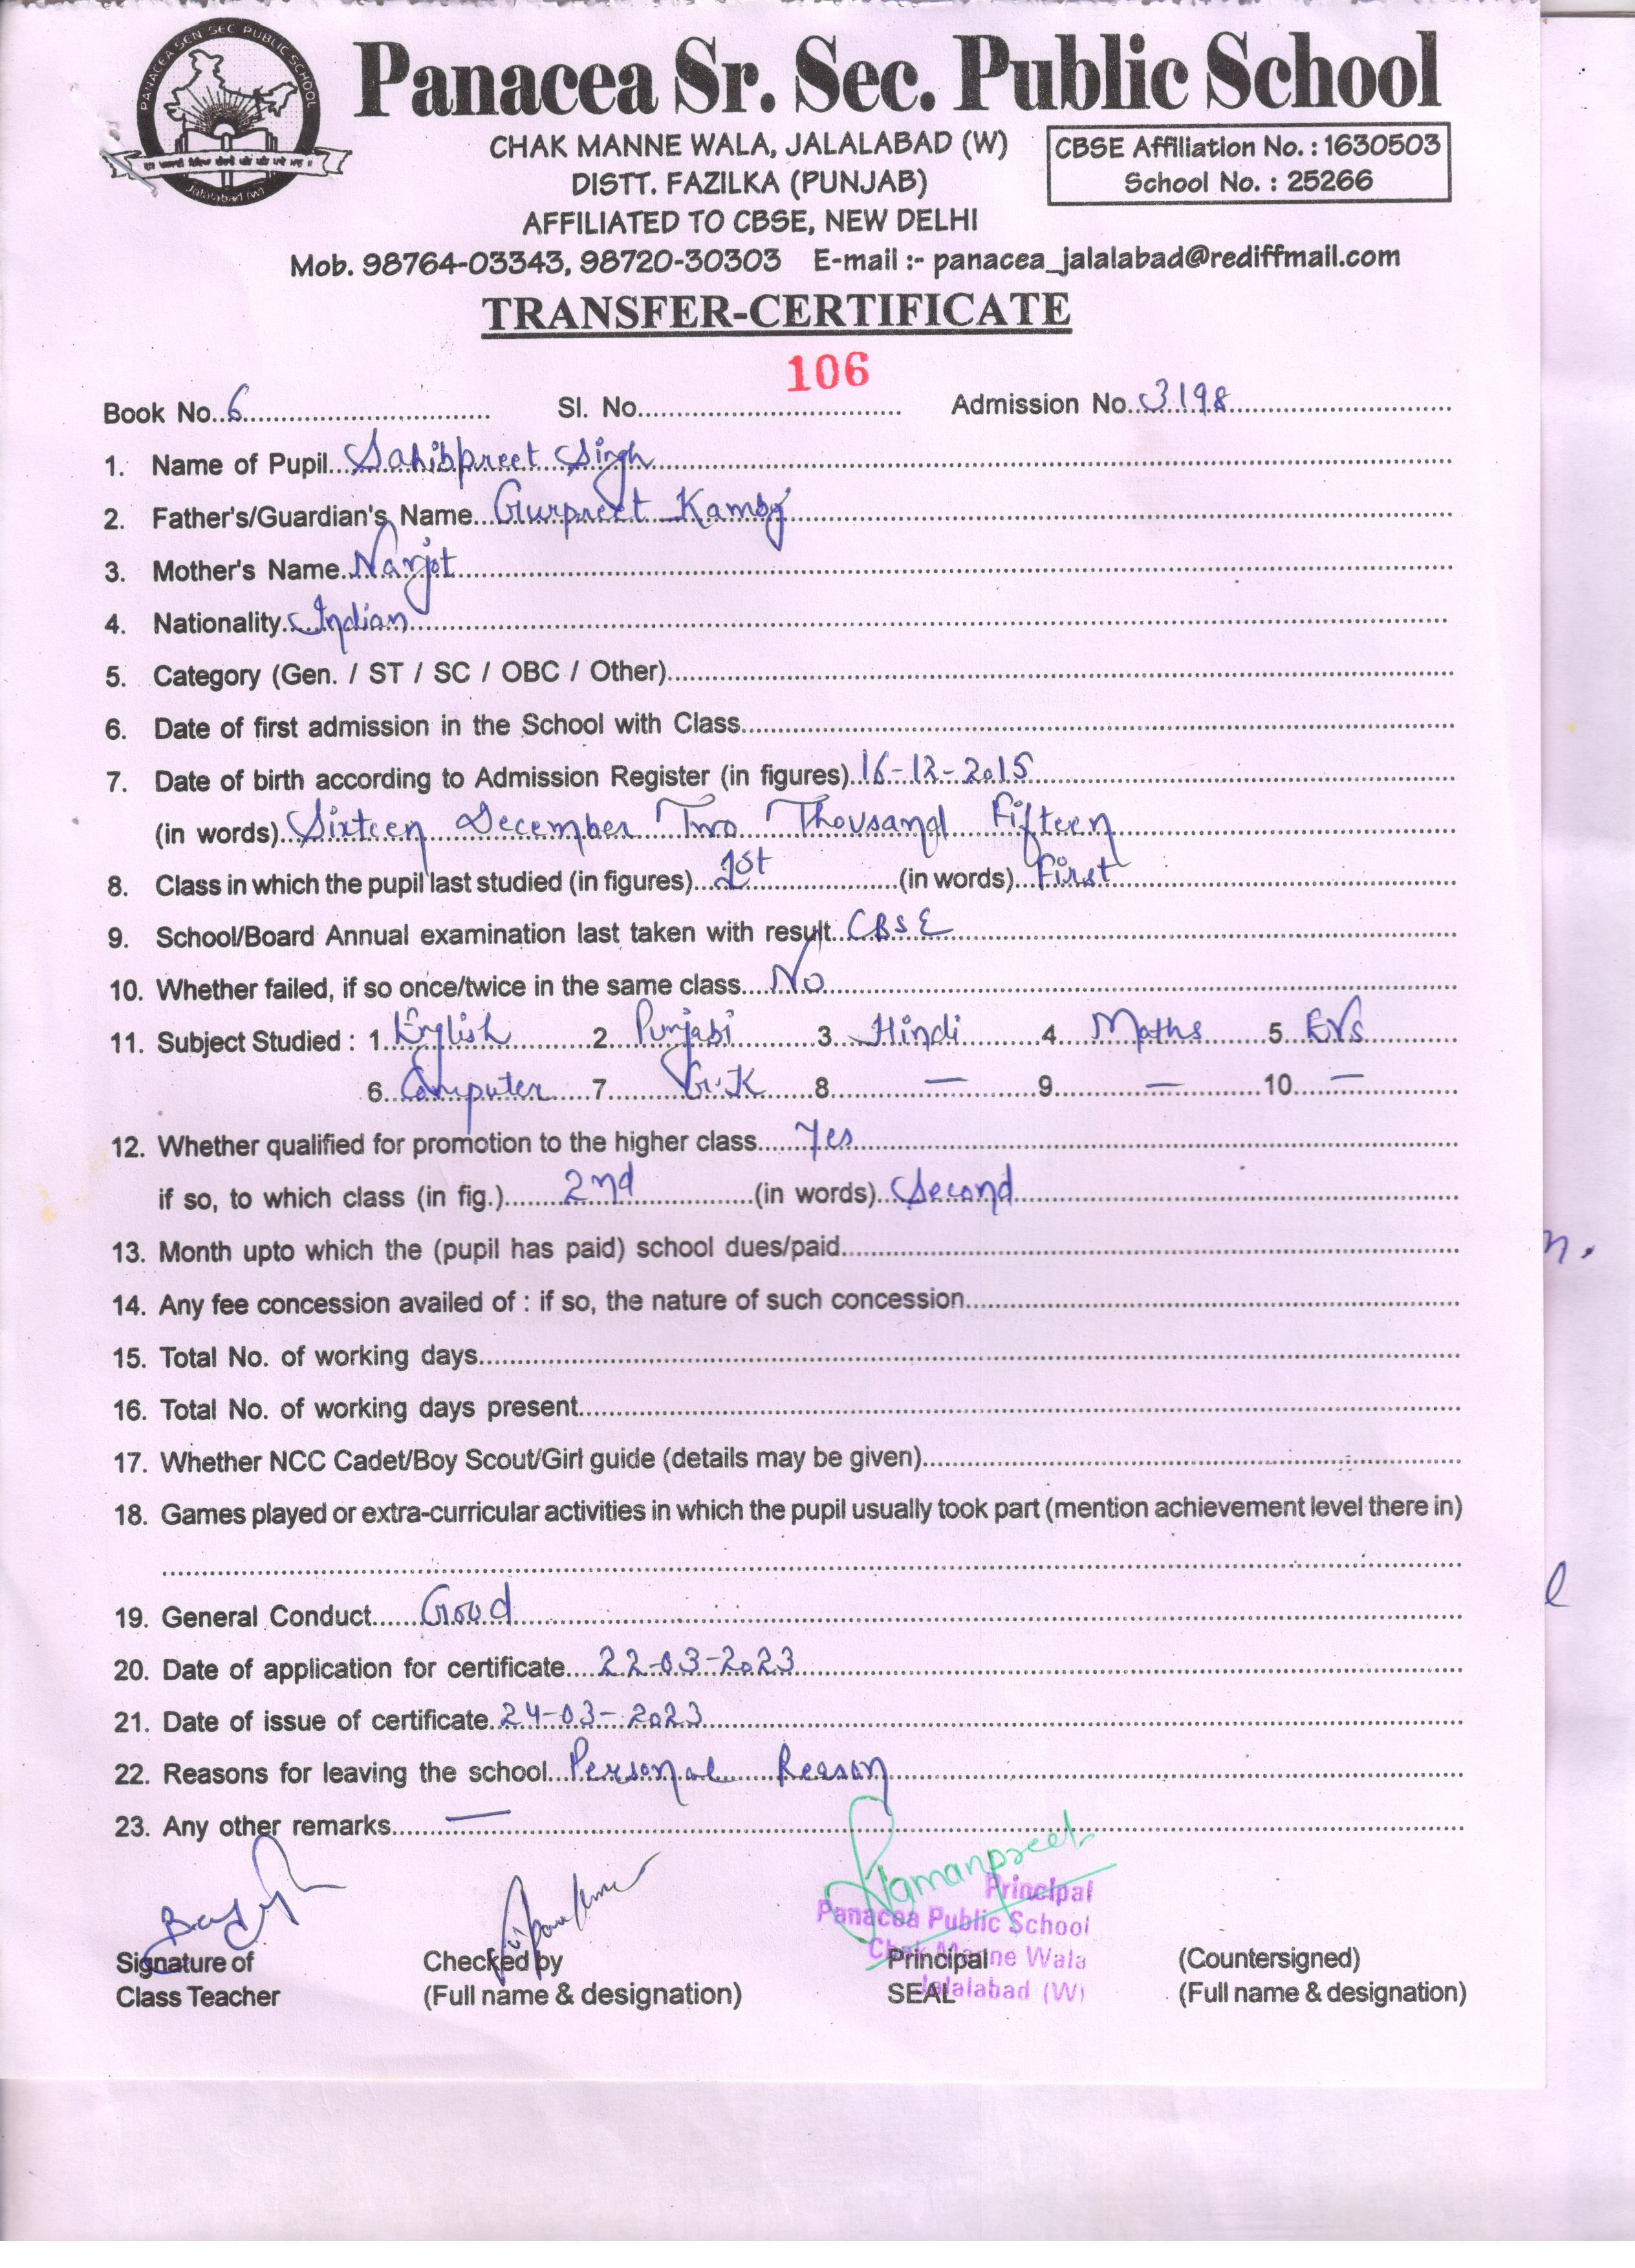 PANACEA SEN SEC PUBLIC SCHOOL
Jalalabad (W)
Panacea Sr. Sec. Public School
CHAK MANNE WALA, JALALABAD (W)
DISTT. FAZILKA (PUNJAB)
AFFILIATED TO CBSE, NEW DELHI
CBSE Affiliation No. : 1630503
School No. : 25266
Mob. 98764-03343, 98720-30303 E-mail :- panacea_jalalabad@rediffmail.com
TRANSFER-CERTIFICATE
106
Book No. 6 Sl. No. Admission No. 3198
1. Name of Pupil Sahibpreet Singh
2. Father's/Guardian's Name Gurpreet Kamboj
3. Mother's Name Navjot
4. Nationality Indian
5. Category (Gen. / ST / SC / OBC / Other)
6. Date of first admission in the School with Class
7. Date of birth according to Admission Register (in figures) 16-12-2015
(in words) Sixteen December Two Thousand Fifteen
8. Class in which the pupil last studied (in figures) 1st (in words) First
9. School/Board Annual examination last taken with result CBSE
10. Whether failed, if so once/twice in the same class No
11. Subject Studied : 1 English 2 Punjabi 3 Hindi 4 Maths 5 EVS
6 Computer 7 G.K 8 — 9 — 10 —
12. Whether qualified for promotion to the higher class Yes
if so, to which class (in fig.) 2nd (in words) Second
13. Month upto which the (pupil has paid) school dues/paid
14. Any fee concession availed of : if so, the nature of such concession
15. Total No. of working days
16. Total No. of working days present
17. Whether NCC Cadet/Boy Scout/Girl guide (details may be given)
18. Games played or extra-curricular activities in which the pupil usually took part (mention achievement level there in)
19. General Conduct Good
20. Date of application for certificate 22-03-2023
21. Date of issue of certificate 24-03-2023
22. Reasons for leaving the school Personal Reason
23. Any other remarks —
Principal
Panacea Public School
Chak Manne Wala
Jalalabad (W)
Signature of Checked by Principal (Countersigned)
Class Teacher (Full name & designation) SEAL (Full name & designation)